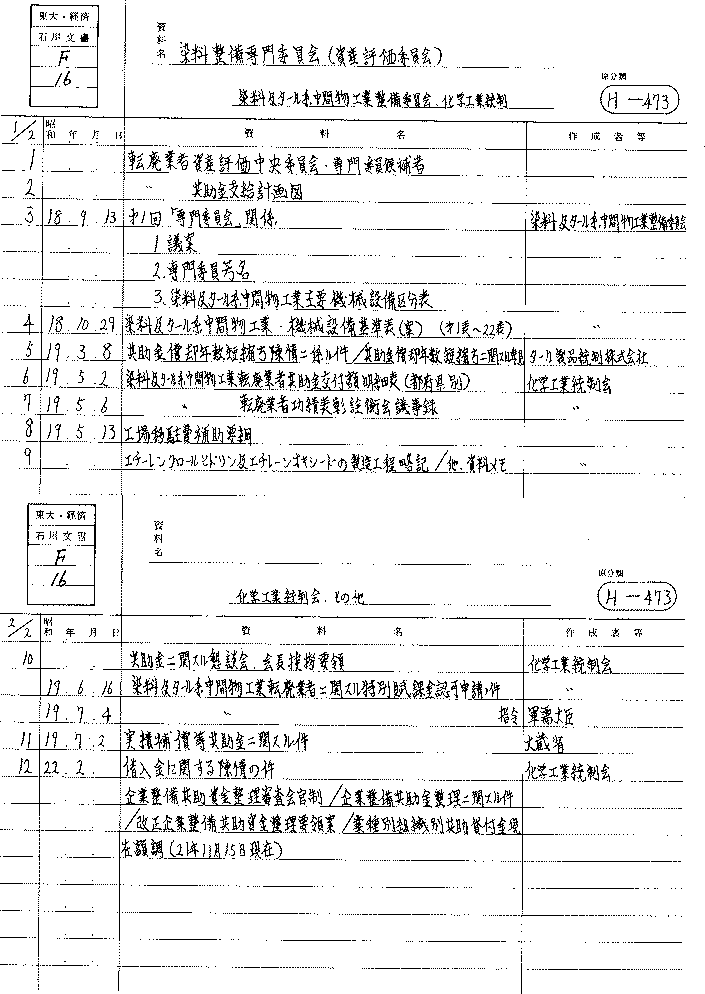 東大・経済
石川文書
F
16
資料名
染料整備専門委員会(資産評価委員会)
染料及タール系中間物工業整備委員会、化学工業統制
原分類
H-473
1/2 昭和 年 月 日 資料名 作成者等
1 転廃業者資産評価中央委員会・専門委員候補者
2 〃 共助金交給計画図
3 18 9 13 才1回「専門委員会」関係 染料及タール系中間物工業整備委員会
1. 議案
2. 専門委員芳名
3. 染料及タール系中間物工業主要機械設備区分表
4 18 10 29 染料及タール系中間物工業・機械設備基準表(案) (才1表~22表) 〃
5 19 3 8 共助金償却年数短縮方陳情ニ係ル件/共助金償却年数短縮方ニ関スル タール製品統制株式会社
6 19 5 2 染料及タール系中間物工業転廃業者共助金交付額明細表(都府県別) 化学工業統制会
7 19 5 6 〃 転廃業者功績表彰詮衡会議事録 〃
8 19 5 13 工場移駐費補助要綱
9 エチーレンクロールヒドリン及エチレーンオキシードの製造工程略記/他、資料メモ 〃
東大・経済
石川文書
F
16
資料名
化学工業統制会、その他
原分類
H-473
2/2 昭和 年 月 日 資料名 作成者等
10 共助金ニ関スル懇談会、会長挨拶要領 化学工業統制会
19 6 16 染料及タール系中間物工業転廃業者ニ関スル特別賦課金認可申請ノ件 〃
19 7 4 〃 指令 軍需大臣
11 19 7 2 実績補償等共助金ニ関スル件 大蔵省
12 22 2 借入金に関する陳情の件 化学工業統制会
企業整備共助資金整理審査会官制/企業整備共助金整理ニ関スル件
/改正企業整備共助資金整理要領案/業種別組織別共助貸付金現
在額調(21年11月15日現在)